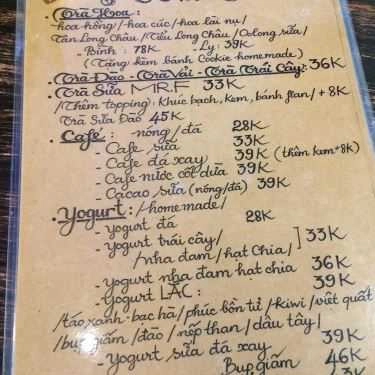 . Trà Hoa :
-hoa hồng/-hoa cúc/-hoa lài nụ/
Tân Long Châu/Tiểu Long Châu/Oolong sữa/
- Bình : 78K - Ly: 39K
(Tặng kèm bánh Cookie-homemade)
. Trà Đào - Trà Vải - Trà Trái Cây: 36K
. Trà Sữa MR.F 33K
/Thêm topping: Khúc bạch, kem, bánh flan/ + 8K
Trà Sữa Đào 45K
. Café : - nóng/đá 28K
- Cafe sữa 33K
- Cafe đá xay 39K (thêm kem+8K)
- Cafe nước cốt dừa 39K
- Cacao sữa (nóng/đá) 39K
. Yogurt : /-homemade/
- yogurt đá 28K
- yogurt trái cây/
/nha đam/hạt Chia/ ] 33K
- yogurt nha đam hạt chia 36K
- yogurt LẮC: 39K
/táo xanh-bạc hà/phúc bồn tử/-kiwi/việt quất
/bụp giấm/đào/nếp than/dâu tây/
- Yogurt sữa đá xay 39K
Bụp giấm 46K